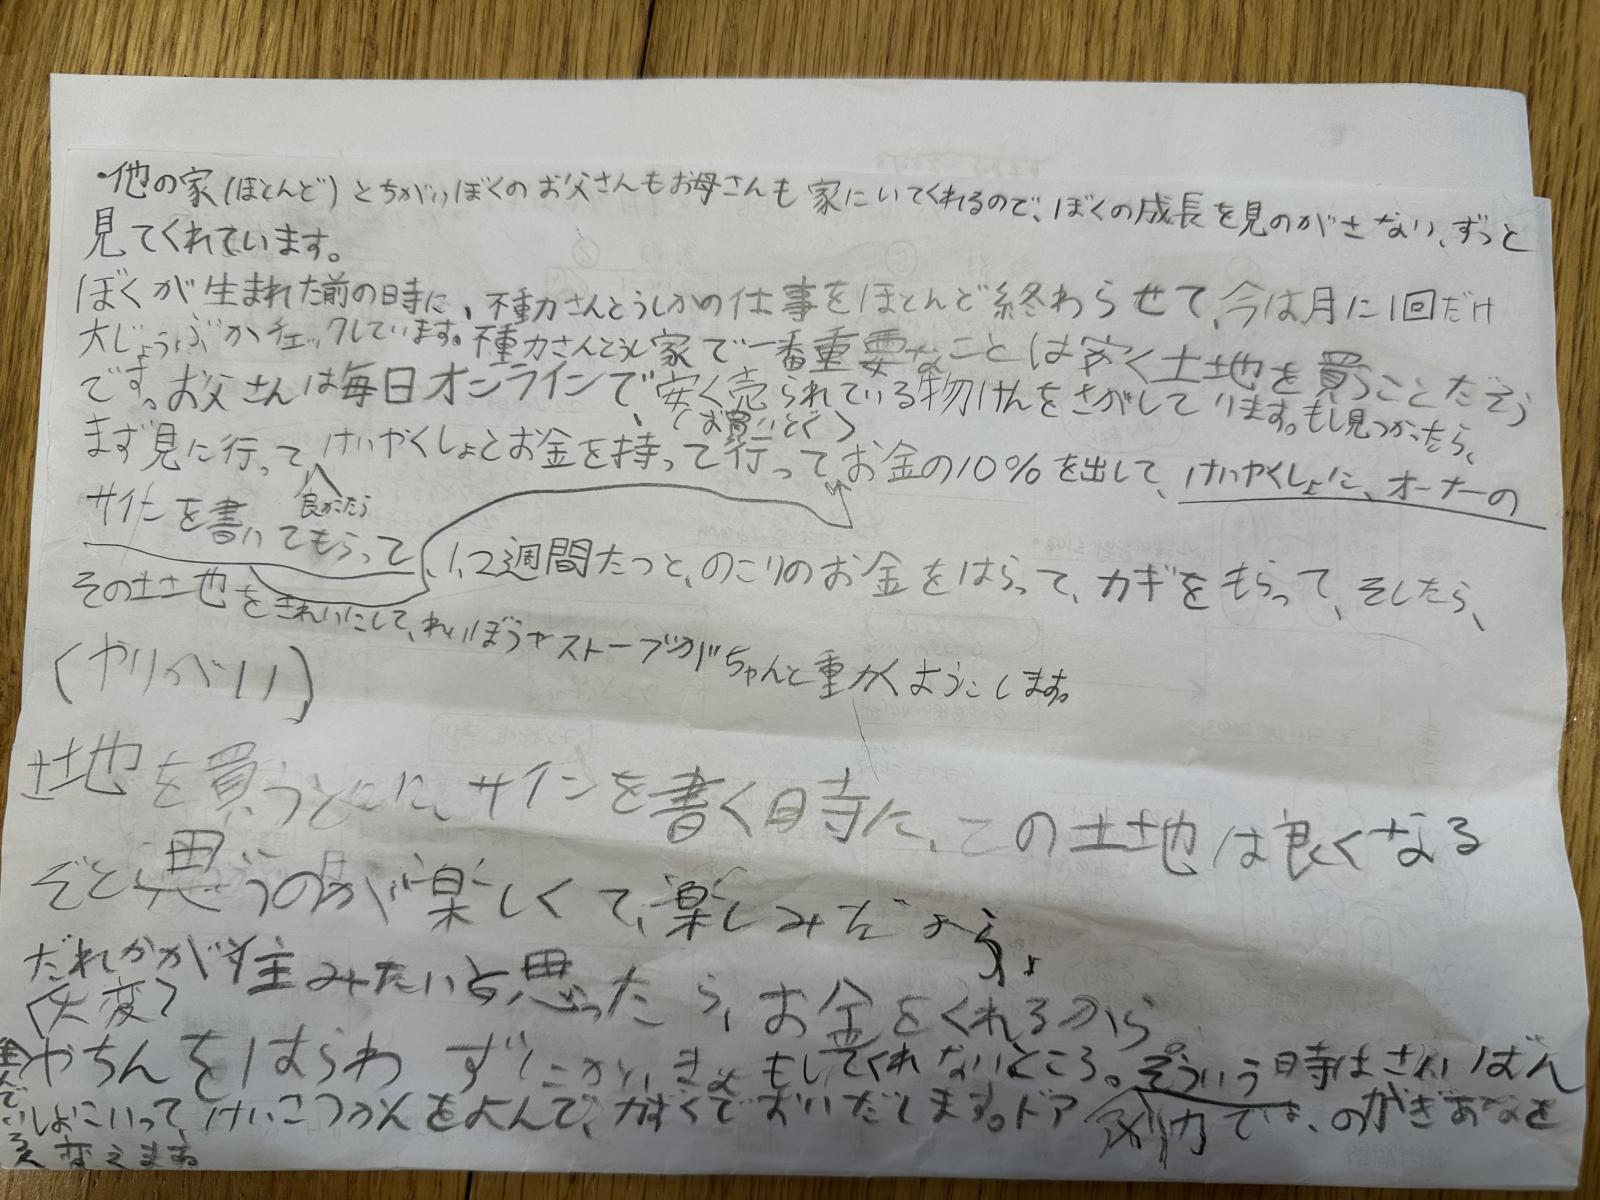 ・他の家(ほとんど)とちがいぼくのお父さんもお母さんも家にいてくれるので、ぼくの成長を見のがさない、ずっと
見てくれています。
ぼくが生まれた前の時に、不動力さんとうしかの仕事をほとんど終わらせて、今は月に1回だけ
大じょうぶかチェックしています。不動力さんとうし家で一番重要なことは安く土地を買うことだそう
です。お父さんは毎日オンラインで、安く売られている物けんをさがしています。もし見つかったら、
(お買いどく)
まず見に行ってけいやくしょとお金を持って行ってお金の10%を出して、けいやくしょに、オーナーの
良かったら
サインを書いてもらって、1、2週間たつと、のこりのお金をはらって、カギをもらって、そしたら、
その土地をきれいにして、れいぼうやストーブがちゃんと動くようにします。
(やりがい)
土地を買うときに、サインを書く時に、この土地は良くなる
ぞと思うのが楽しくて、楽しみだよう。
だれかが住みたいと思ったら、お金をくれるから。
(大変)
やちんをはらわず、きょもしてくれないところ。そういう時はさいばん
しょにいって、けいさつかんをよんで、力ずくでおいだします。ドア では、のかぎあなを
変えます。